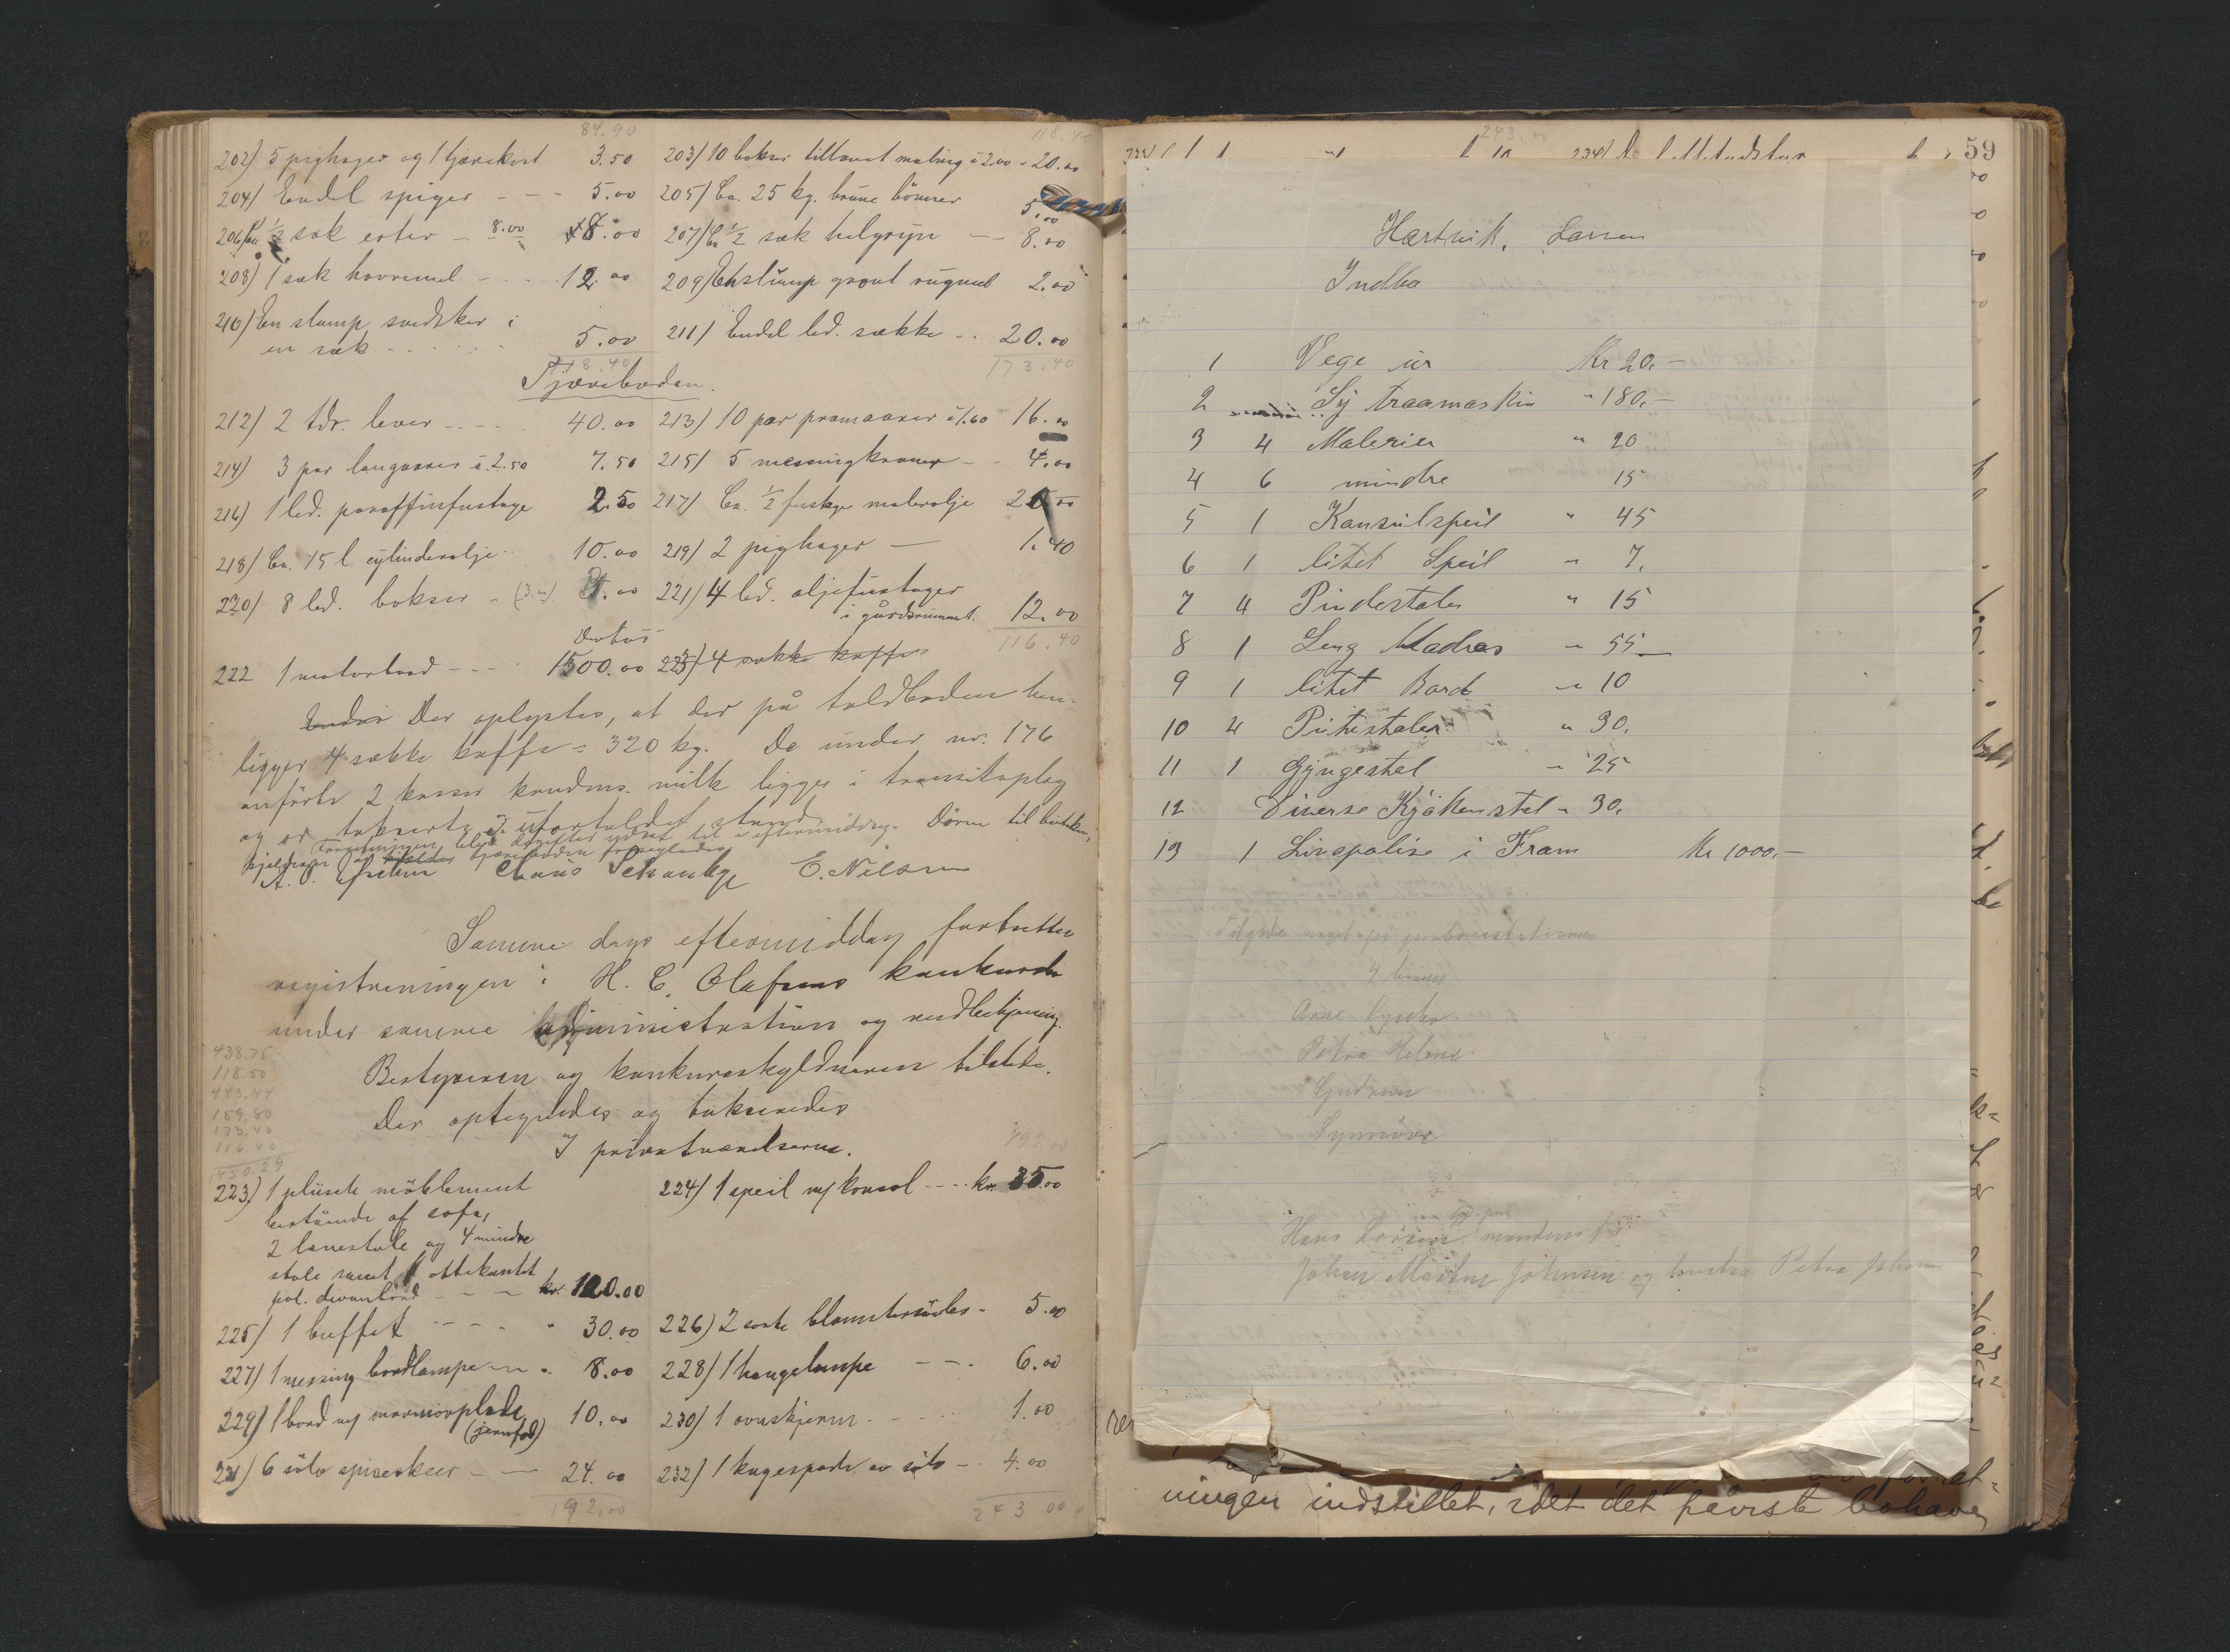 84.90 118.40
202) 5 pighager og 1 tjærekost 3.50 203) 10 bokser tillavet maling à 2.00 - 20.00
204) Endel spiger - - - 5.00 205) Ca. 25 kg. brune bönner 5.00
206) Ca. 1/2 sæk erter - 8.00 8.00 207) Ca 1/2 sæk helgryn - - 8.00
208) 1 sæk havremel - . . . 12.00 209) En slump grovt rugmel 2.00
210) En slump svedsker i
en sæk . . . . . 5.00 211) Endel led. sække . . 20.00
118.40 173.40
Tjæreboden.
212) 2 tdr. lever - - - - 40.00 213) 10 par pramaarer à 1.60 16.00
214) 3 par langaarer à 2.50 7.50 215) 5 messingkraner - - 4.00
216) 1 led. paraffinfustage 2.50 217) Ca. 1/2 fustage malerolje 20.00
218) Ca. 15 l. cylinderolje 10.00 219) 2 pighager — 1.40
220) 8 led. bokser - .00 221) 4 led. oljefustager
i gårdsrummet. 12.00
116.40
222 1 motorbaad - - - 1500.00 223) 4 sække kaffe
Der oplystes, at der på toldboden hen-
ligger 4 sække kaffe = 320 kg. De under nr. 176
anförte 2 kasser kondens. milk ligger i transitoplag
og er takserte i ufortoldet stand.
til i eftermiddag. Dören til butiken,
kjelderen og tjæreboden forsegledes
Claus Schanche E. Nilsen
Samme dags eftermiddag fortsattes
registreringen i H. C. Olafsens konkursbo
under samme administration og medbetjening.
Bestyreren og konkursskyldneren tilstede.
Der optegnedes og takseredes
I privatværelserne.
438.75
118.50
443.44
159.80
173.40
116.40
1450.29
223) 1 plüschs möblement 224) 1 speil m/ konsol - - - kr. 35.00
bestående af sofa,
2 lænestole og 4 mindre
stole samt 1 ottekantet
pol. divanbord - - - kr. 120.00
225) 1 buffet - - - - " 30.00 226) 2 sorte blomstersöiler - 5.00
227) 1 messing bordlampe - " 8.00 228) 1 hængelampe - - . 6.00
229) 1 bord m/ marmorplade 10.00 230) 1 ovnskjerm - - . . 1.00
(jernfod)
231) 6 sölv spiseskeer - — 24.00 232) 1 kagespade av sölv - . 4.00
192.00 243 00
243.00
59
Hartvik. Larsen
Indbo
1 Vege ur Kr 20.-
2 Sy traamaskin " 180.-
3 4 Malerier " 20
4 6 mindre 15
5 1 Konsulspeil " 45
6 1 litet Speil " 7.
7 4 Pindestoler " 15
8 1 Seng Madras " 55
9 1 litet Bord " 10
10 4 Pinnestoler " 30.
11 1 Gyngestol " 25
12 Diverse Kjökkenstel " 30.
13 1 Livspolise i Fram Kr 1000.-
4 barn
Petra Helene
Gudrun
Synnöve
Hans Larsen mandens far
Johan Martin Johnsen og hustru Petra
ningen indstillet, idet det påviste bohave